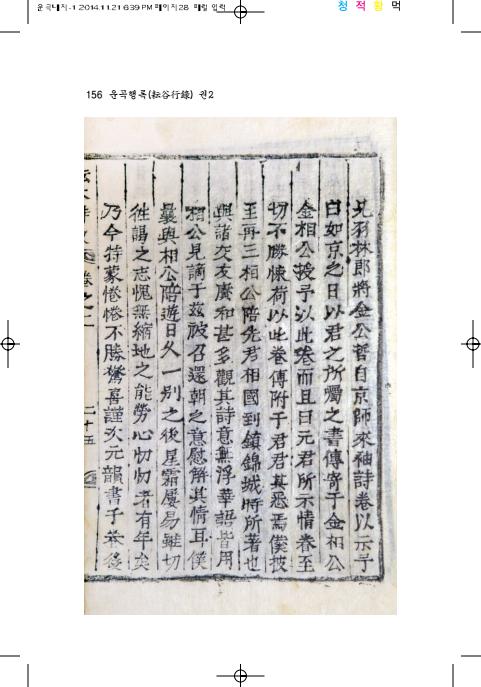 운곡내지-1 2014.11.21 6:39 PM 페이지28 매킬 입력
청 적 황 먹
156 운곡행록(耘谷行錄) 권2
兄羽林郎將金公晢自京師來袖詩卷以示予
曰如京之日以君之所囑之書傳寄于金相公
金相公授予以此卷而且曰元君所示情眷至
切不勝懷荷以此卷傳附于君君其悉焉僕披
至再三相公陪先君相國到鎭錦城時所著也
與諸交友賡和甚多觀其詩意無浮華語皆用
相公見謫于玆被召還朝之意慰解其情耳僕
曩與相公陪遊日久一別之後星霜屢易雖切
徃謁之志愧無縮地之能勞心忉忉者有年矣
乃今特蒙惓惓不勝驚喜謹次元韻書于卷後
卷之二
二十五